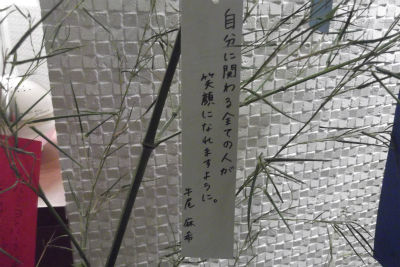 自分に関わる全ての人が
笑顔になれますように。
牛尾 麻希